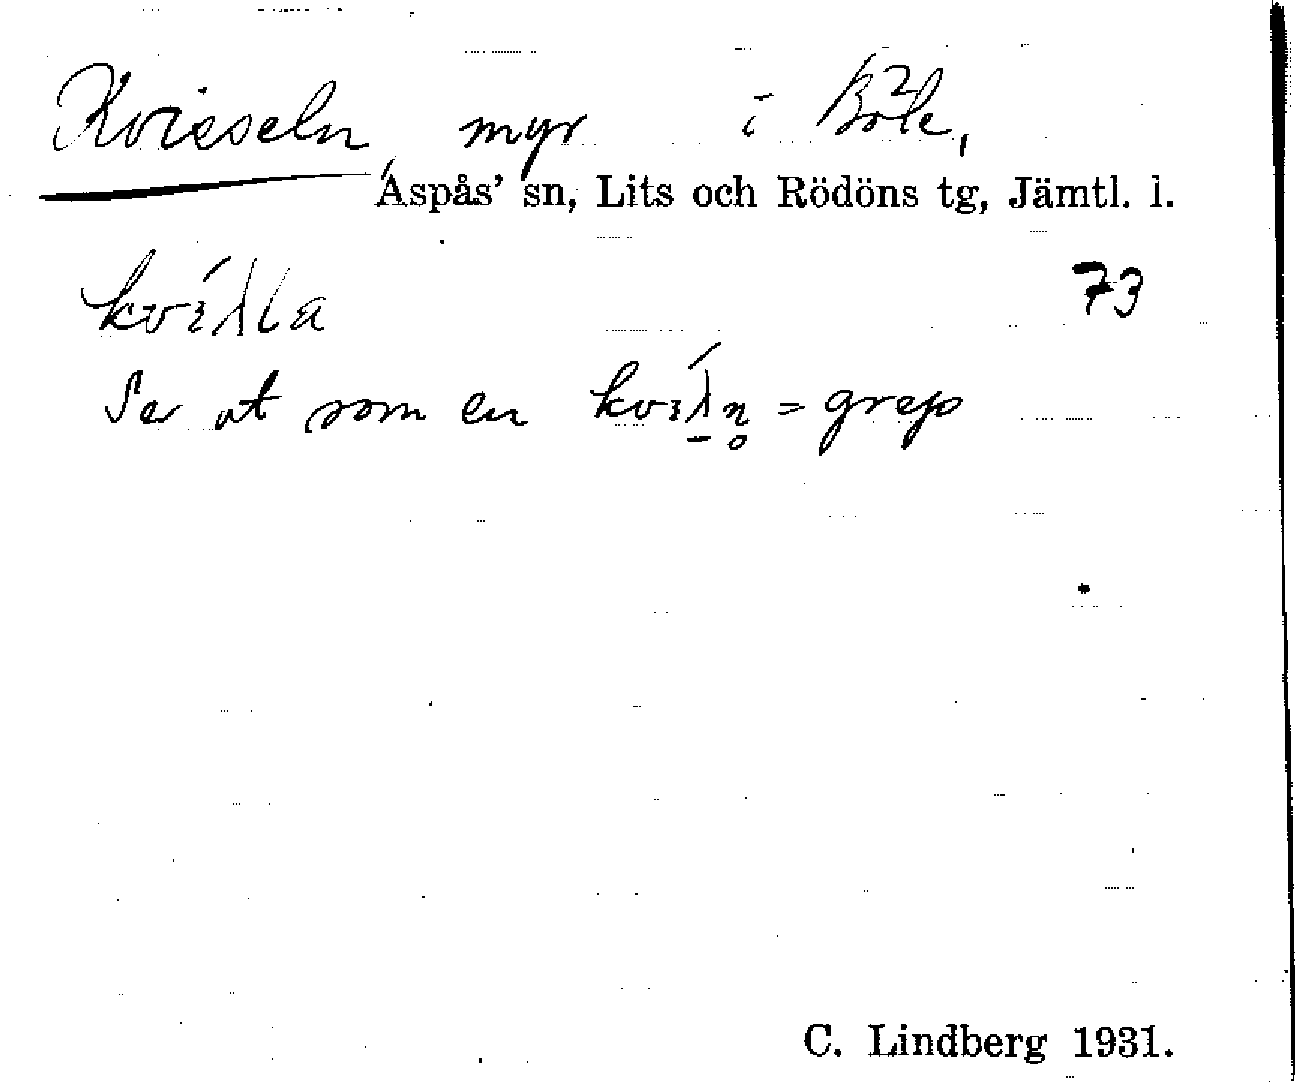 Kvisseln, myr i Böle,
Aspås' sn, Lits och Rödöns tg, Jämtl. l.
73
Ser ut som en = grep
C. Lindberg 1931.